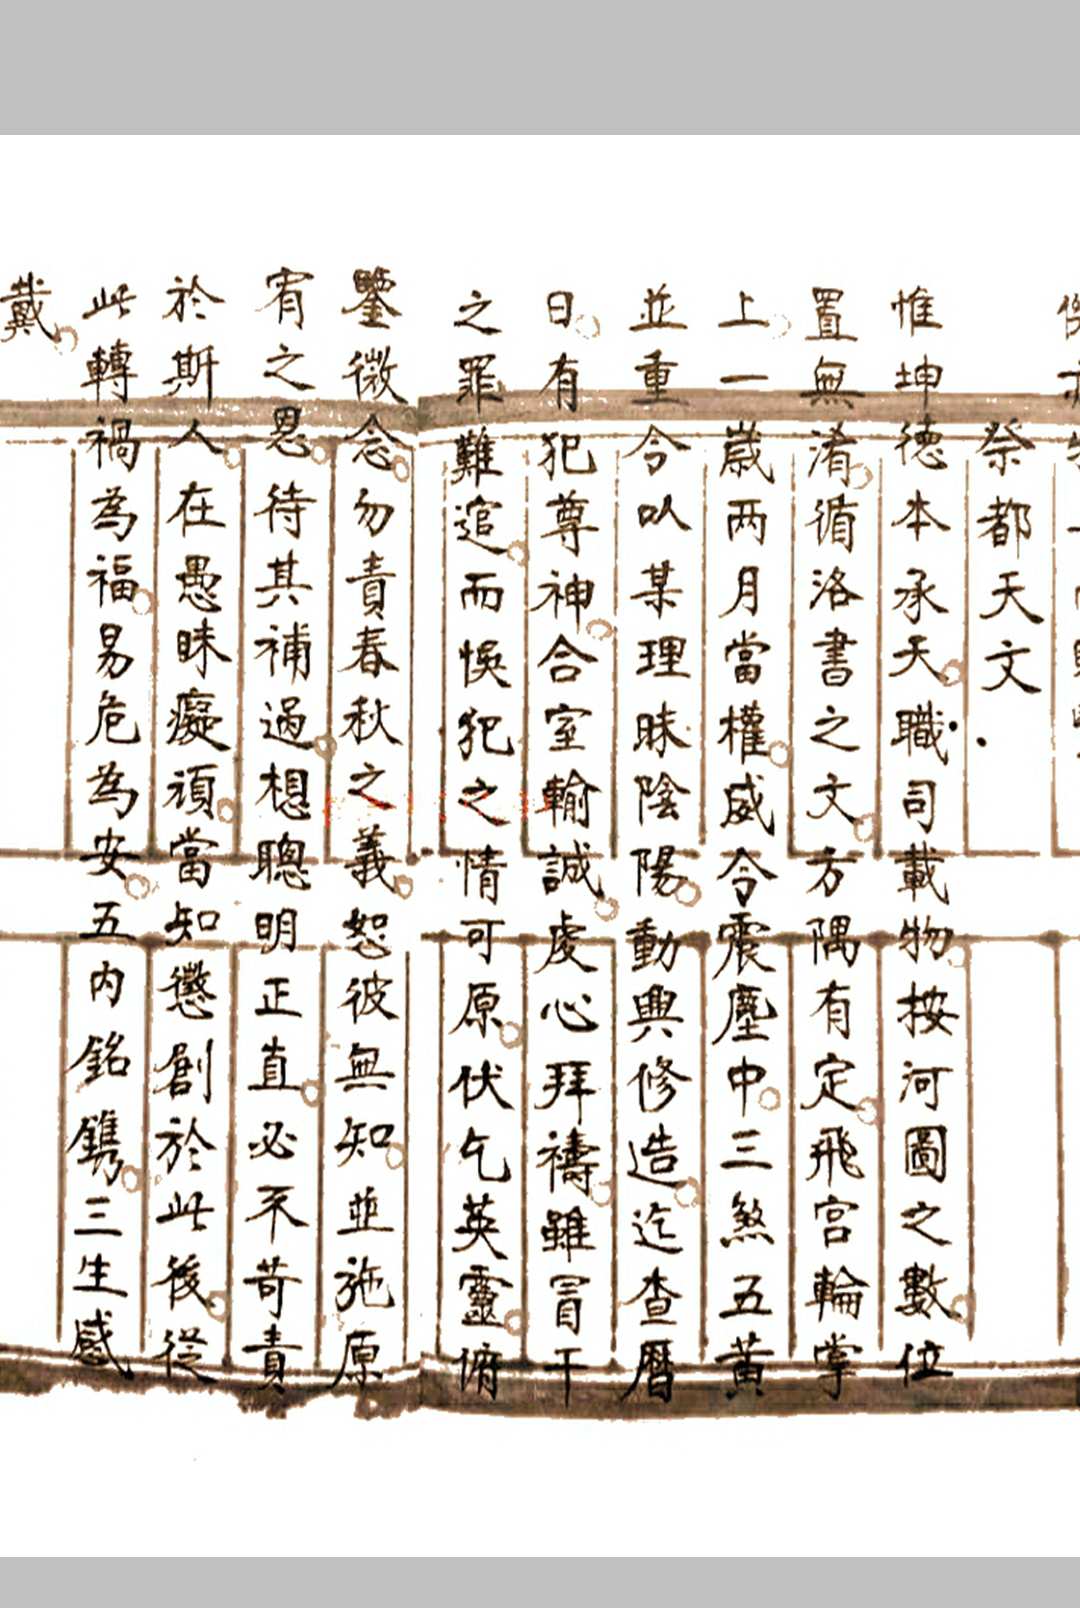 祭都天文
惟坤德本承天職司載物按河圖之數位
置無淆循洛書之文方隅有定飛宮輪掌
上一歲兩月當權威令震塵中三煞五黃
並重今以某理昧陰陽動興修造迄查曆
日有犯尊神合室輸誠虔心拜禱雖冒干
之罪難逭而悞犯之情可原伏乞英靈俯
鑒微念勿責春秋之義恕彼無知並施原
宥之恩待其補過想聰明正直必不苛責
於斯人在愚昧癡頑當知懲創於此後從
此轉禍為福易危為安五內銘鐫三生感
戴